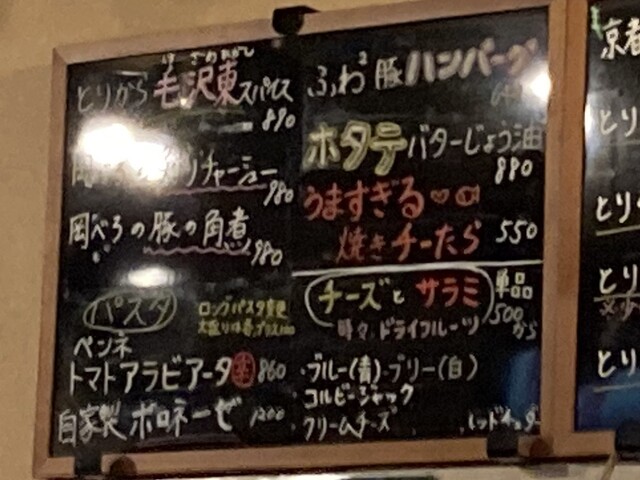 とりから毛沢東スパイス
890
岡 リチャーシュー
980
岡べろの豚の角煮
980
パスタ
ロングパスタ変更
ペンネ
トマトアラビアータ 860
自家製ボロネーゼ 1200
ふわ2豚ハンバーグ
ホタテバターじょう油
880
うますぎる
焼きチーたら 550
チーズとサラミ 単品
時々、ドライフルーツ 500から
・ブルー(青)・ブリー(白)
・コルビージャック
・クリームチーズ
京都
とり
とり
とり
とり